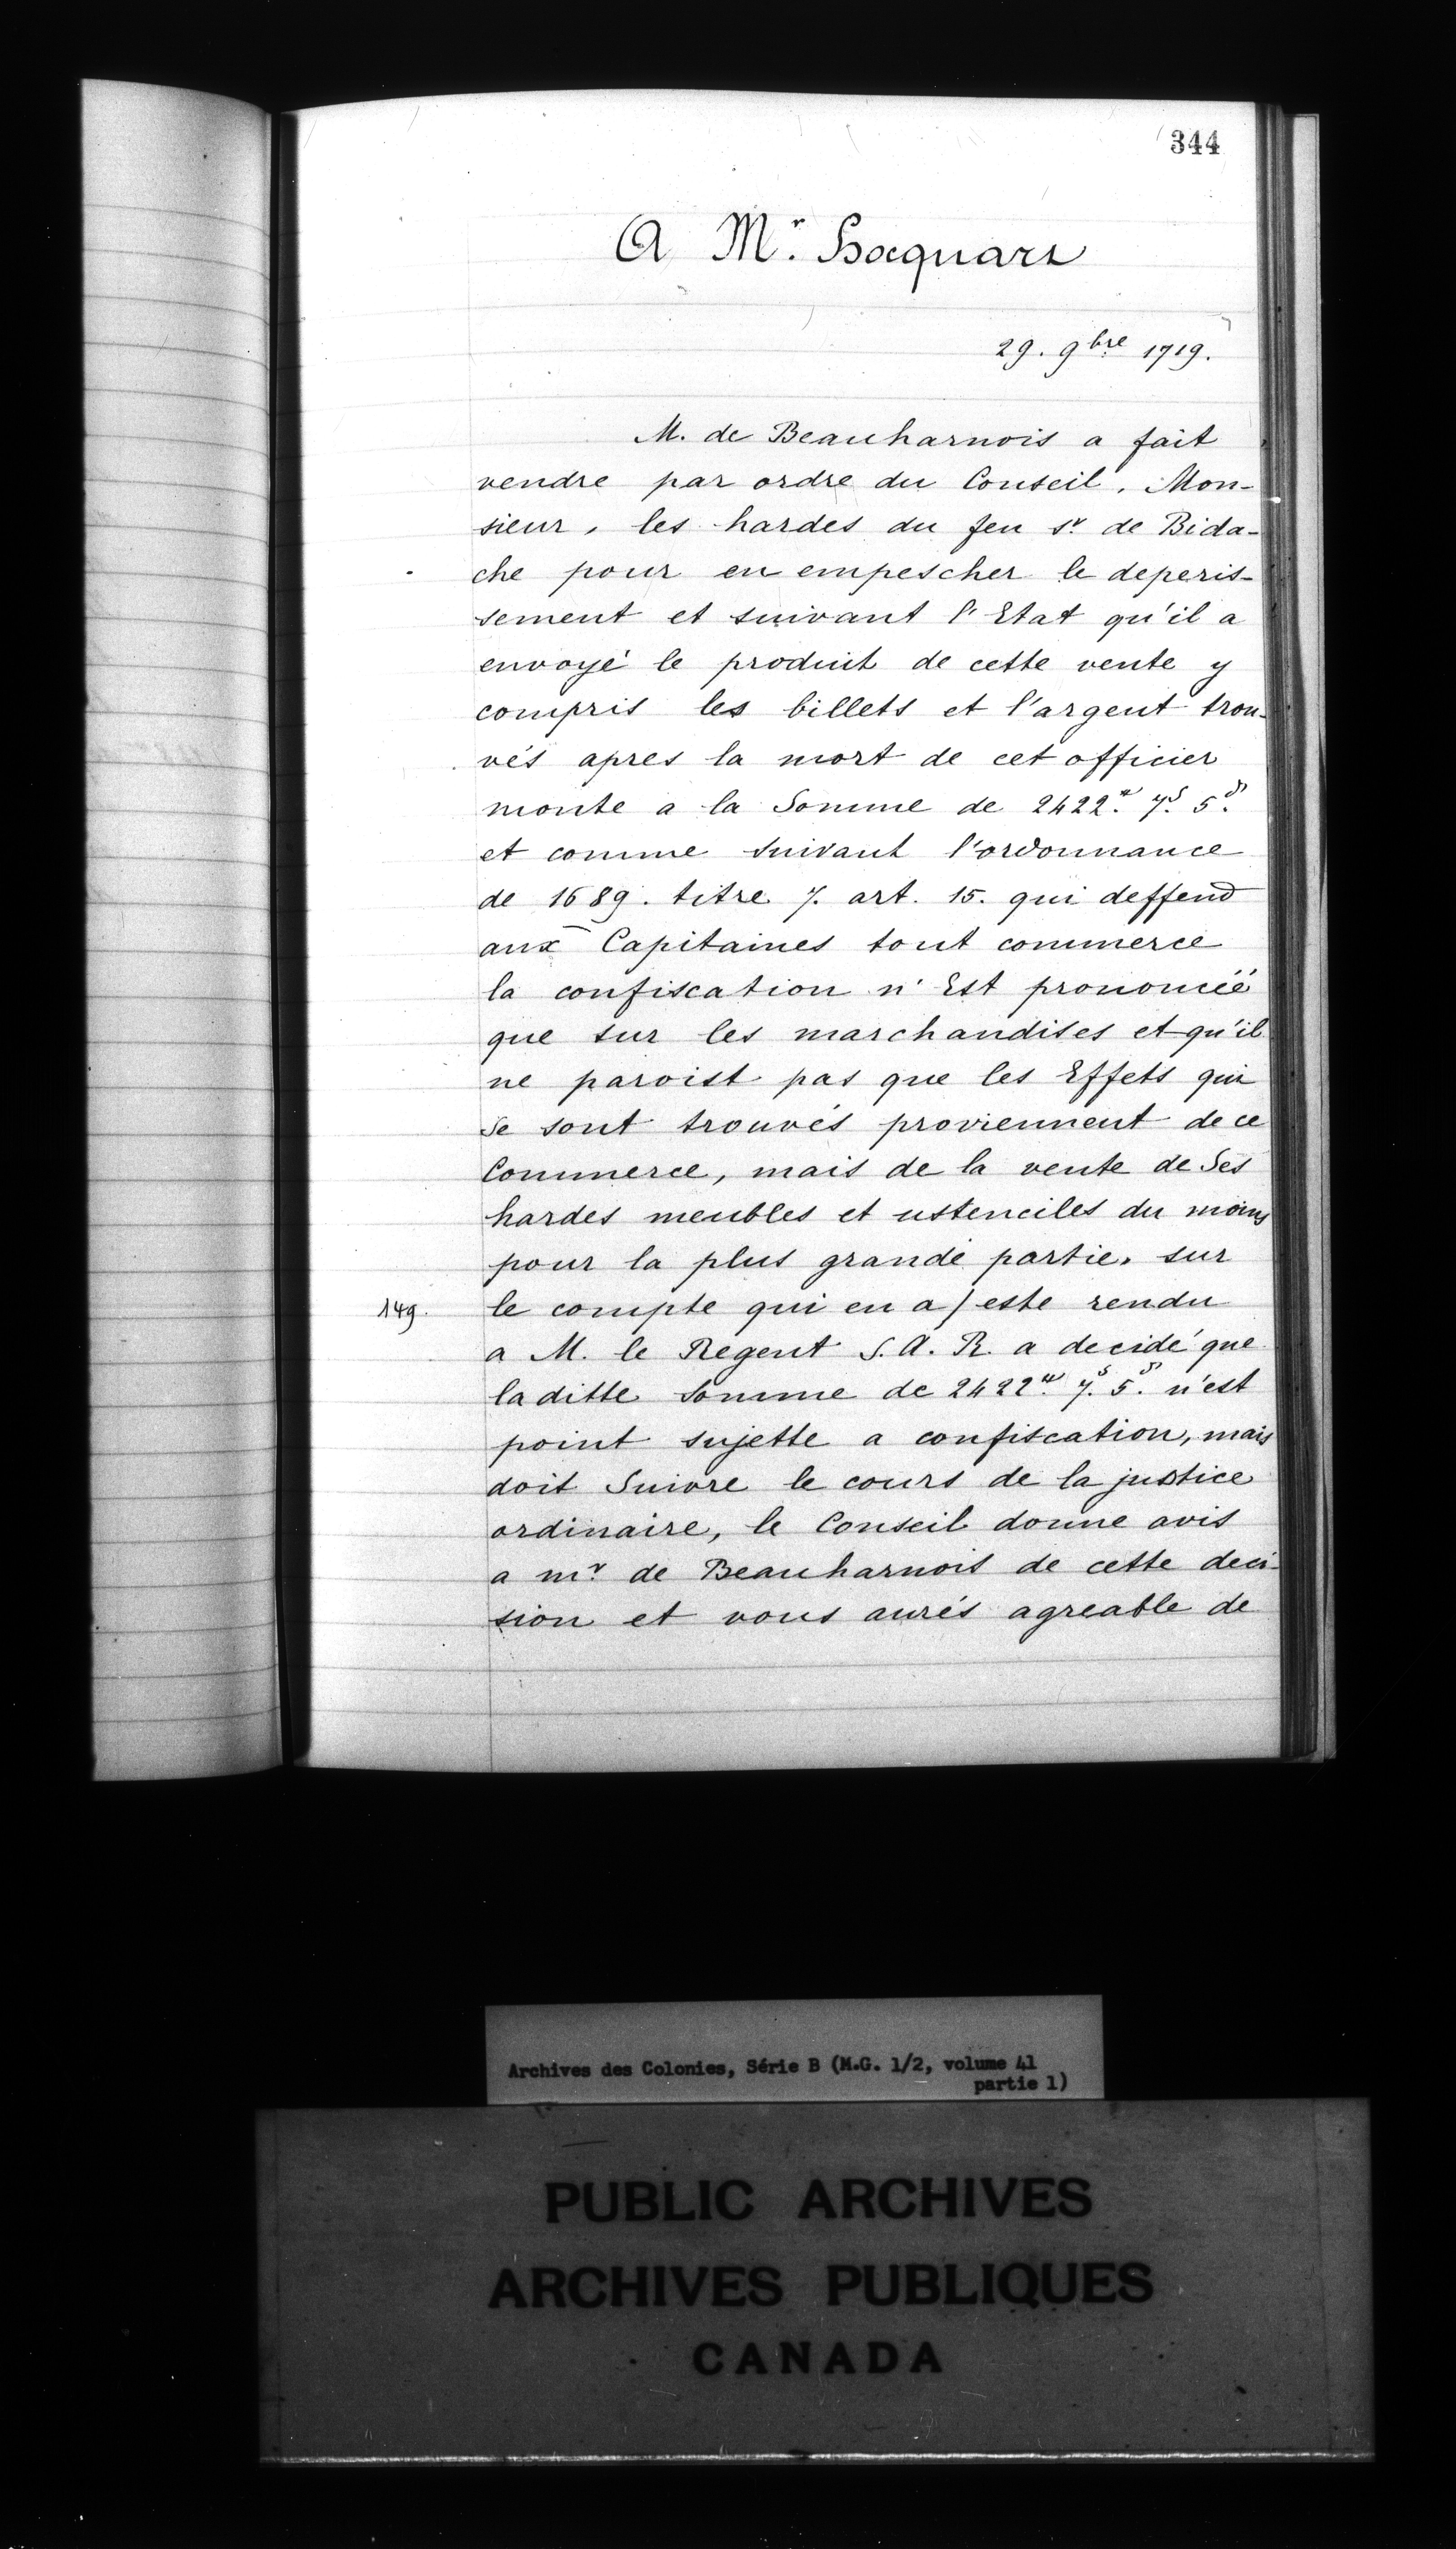 344
A Mr. Hocquart
29. 9bre 1719.
M. de Beauharnois a fait
vendre par ordre du Conseil, Mon-
sieur, les hardes du feu sr. de Bida-
che pour en empescher le deperis-
sement et suivant l'Etat qu'il a
envoyé le produit de cette vente y
compris les billets et l'argent trou-
vés apres la mort de cet officier
monte a la Somme de 2422.# 7.s 5.d
et comme suivant l'ordonnance
de 1689. titre 7. art. 15. qui deffend
aux Capitaines tout commerce
la confiscation n'Est prononcéé
que sur les marchandises et qu'il
ne paroist pas que les Effets qui
se sont trouvés proviennent de ce
Commerce, mais de la vente de Ses
hardes meubles et ustenciles du moins
pour la plus grande partie, sur
149. le compte qui en a / esté rendu
a M. le Regent S. A. R. a decidé que
laditte somme de 2422.# 7.s 5.d n'est
point sujette a confiscation, mais
doit Suivre le cours de la justice
ordinaire, le Conseil donne avis
a mr. de Beauharnois de cette deci-
sion et vous aurés agreable de
Archives des Colonies, Série B (M.G. 1/2, volume 41
partie 1)
PUBLIC ARCHIVES
ARCHIVES PUBLIQUES
CANADA